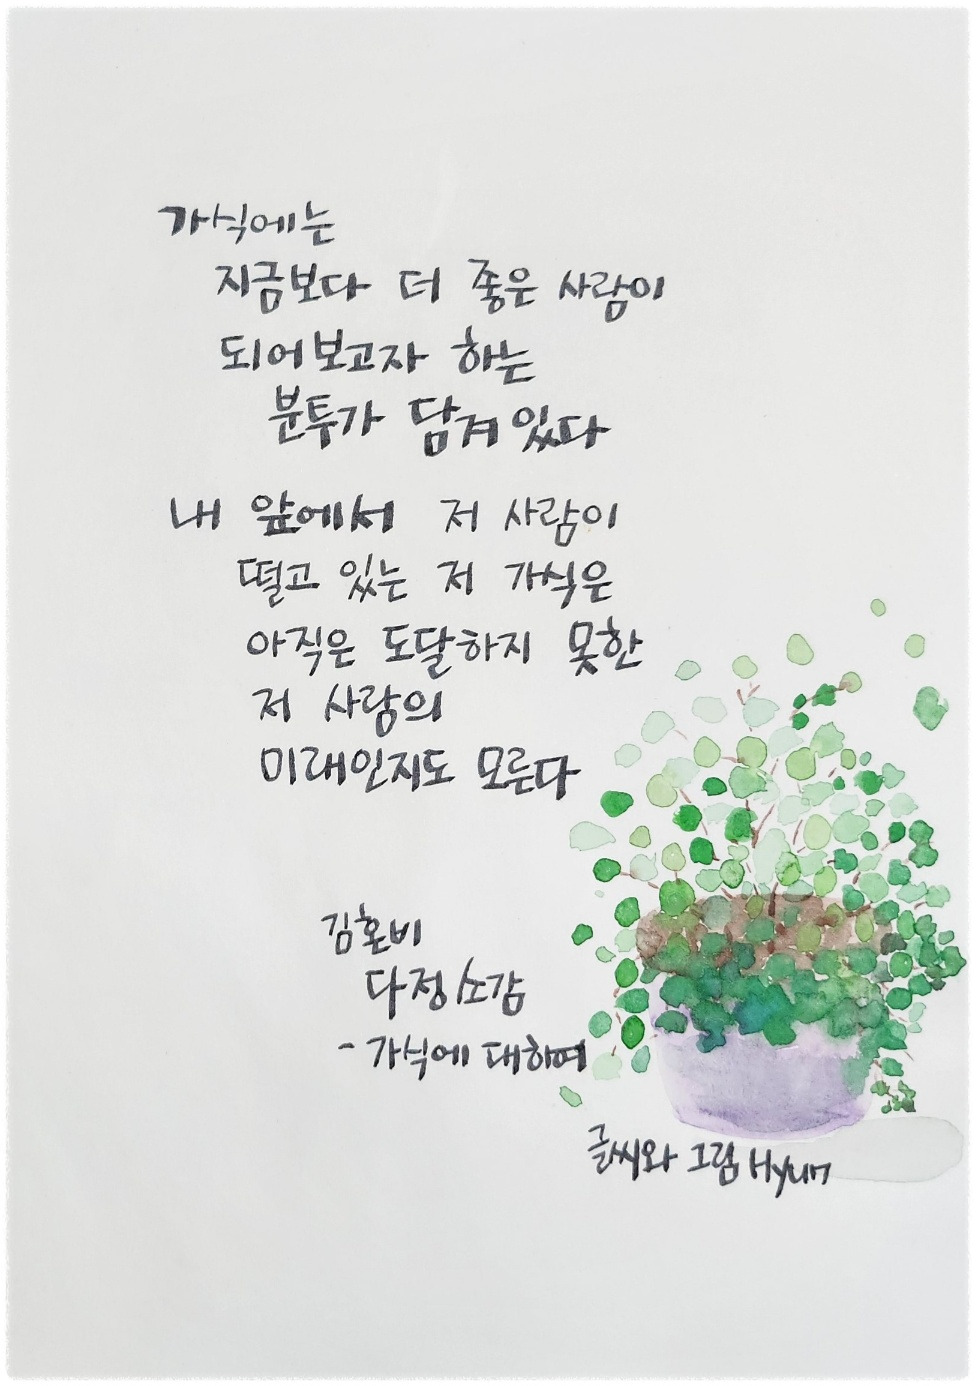 가식에는
지금보다 더 좋은 사람이
되어보고자 하는
분투가 담겨있다
내 앞에서 저 사람이
떨고 있는 저 가식은
아직은 도달하지 못한
저 사람의
미래인지도 모른다
김혼비
다정소감
- 가식에 대하여
글씨와 그림 Hyun